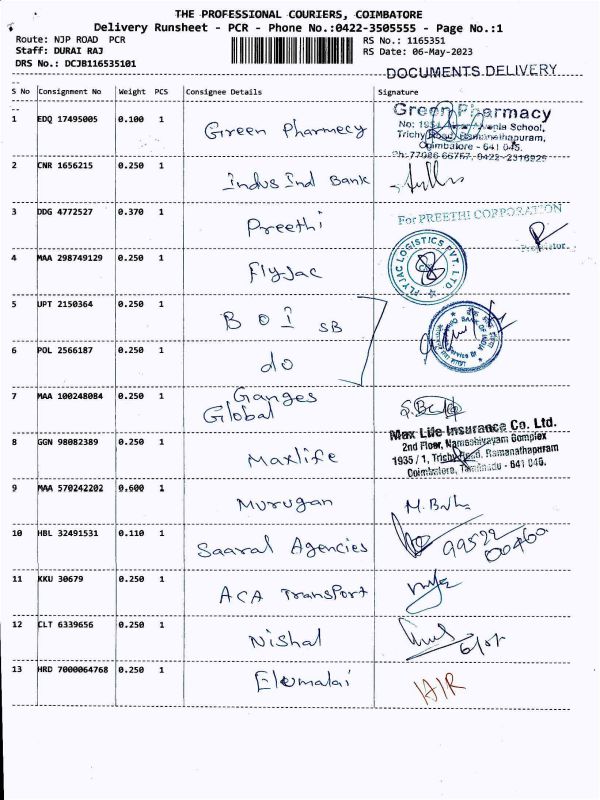 THE PROFESSIONAL COURIERS, COIMBATORE
Delivery Runsheet - PCR - Phone No.:0422-3505555 - Page No.:1
Route: NJP ROAD PCR RS No.: 1165351
Staff: DURAI RAJ RS Date: 06-May-2023
DRS No.: DCJB116535101
DOCUMENTS DELIVERY
S No Consignment No Weight PCS Consignee Details Signature
1 EDQ 17495005 0.100 1 Green Pharmecy
Green Pharmacy
School,
Trichy Road, Ramanathapuram,
Coimbatore - 641 045.
Ph: 77086 66767, 0422-2316929
2 CNR 1656215 0.250 1 Indus Ind Bank
3 DDG 4772527 0.370 1 Preethi
For PREETHI CORPORATION
Proprietor
4 MAA 298749129 0.250 1 FlyJac
FLYJAC LOGISTICS PVT. LTD.
5 UPT 2150364 0.250 1 BOI SB
6 POL 2566187 0.250 1 do
7 MAA 100248084 0.250 1 Ganges
Global
8 GGN 98082389 0.250 1 Maxlife
Max Life Insurance Co. Ltd.
2nd Floor, Narasahivayam Complex
1935 / 1, Trichy Road, Ramanathapuram
Coimbatore, Tamilnadu - 641 045.
9 MAA 570242202 0.600 1 Murugan
10 HBL 32491531 0.110 1 Saaral Agencies
99522
00460
11 KKU 30679 0.250 1 ACA Transport
12 CLT 6339656 0.250 1 Nishal
13 HRD 7000064768 0.250 1 Elumalai